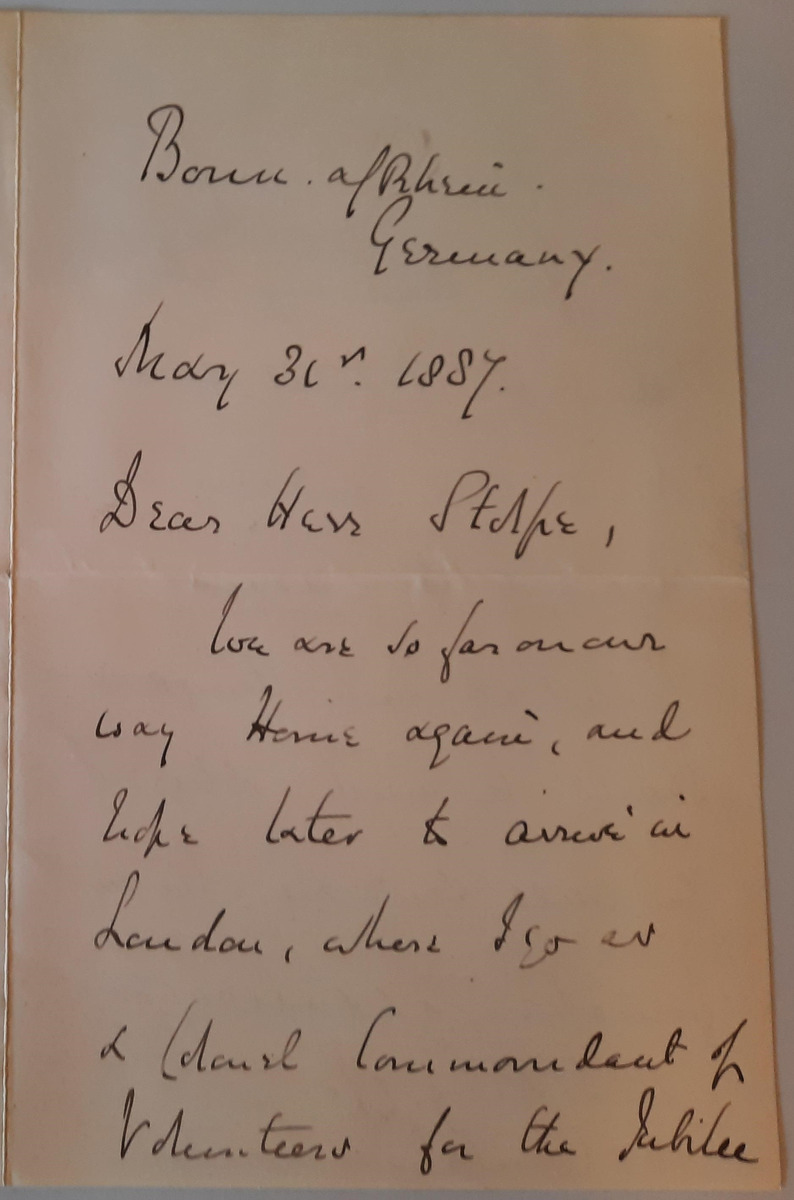 Bonn. a/Rhein.
Germany.
May 31st. 1887.
Dear Herr Stolpe,
We are so far on our
way Home again, and
hope later to arrive in
London, where I go as
a Colonel Commandant of
Volunteers for the Jubilee